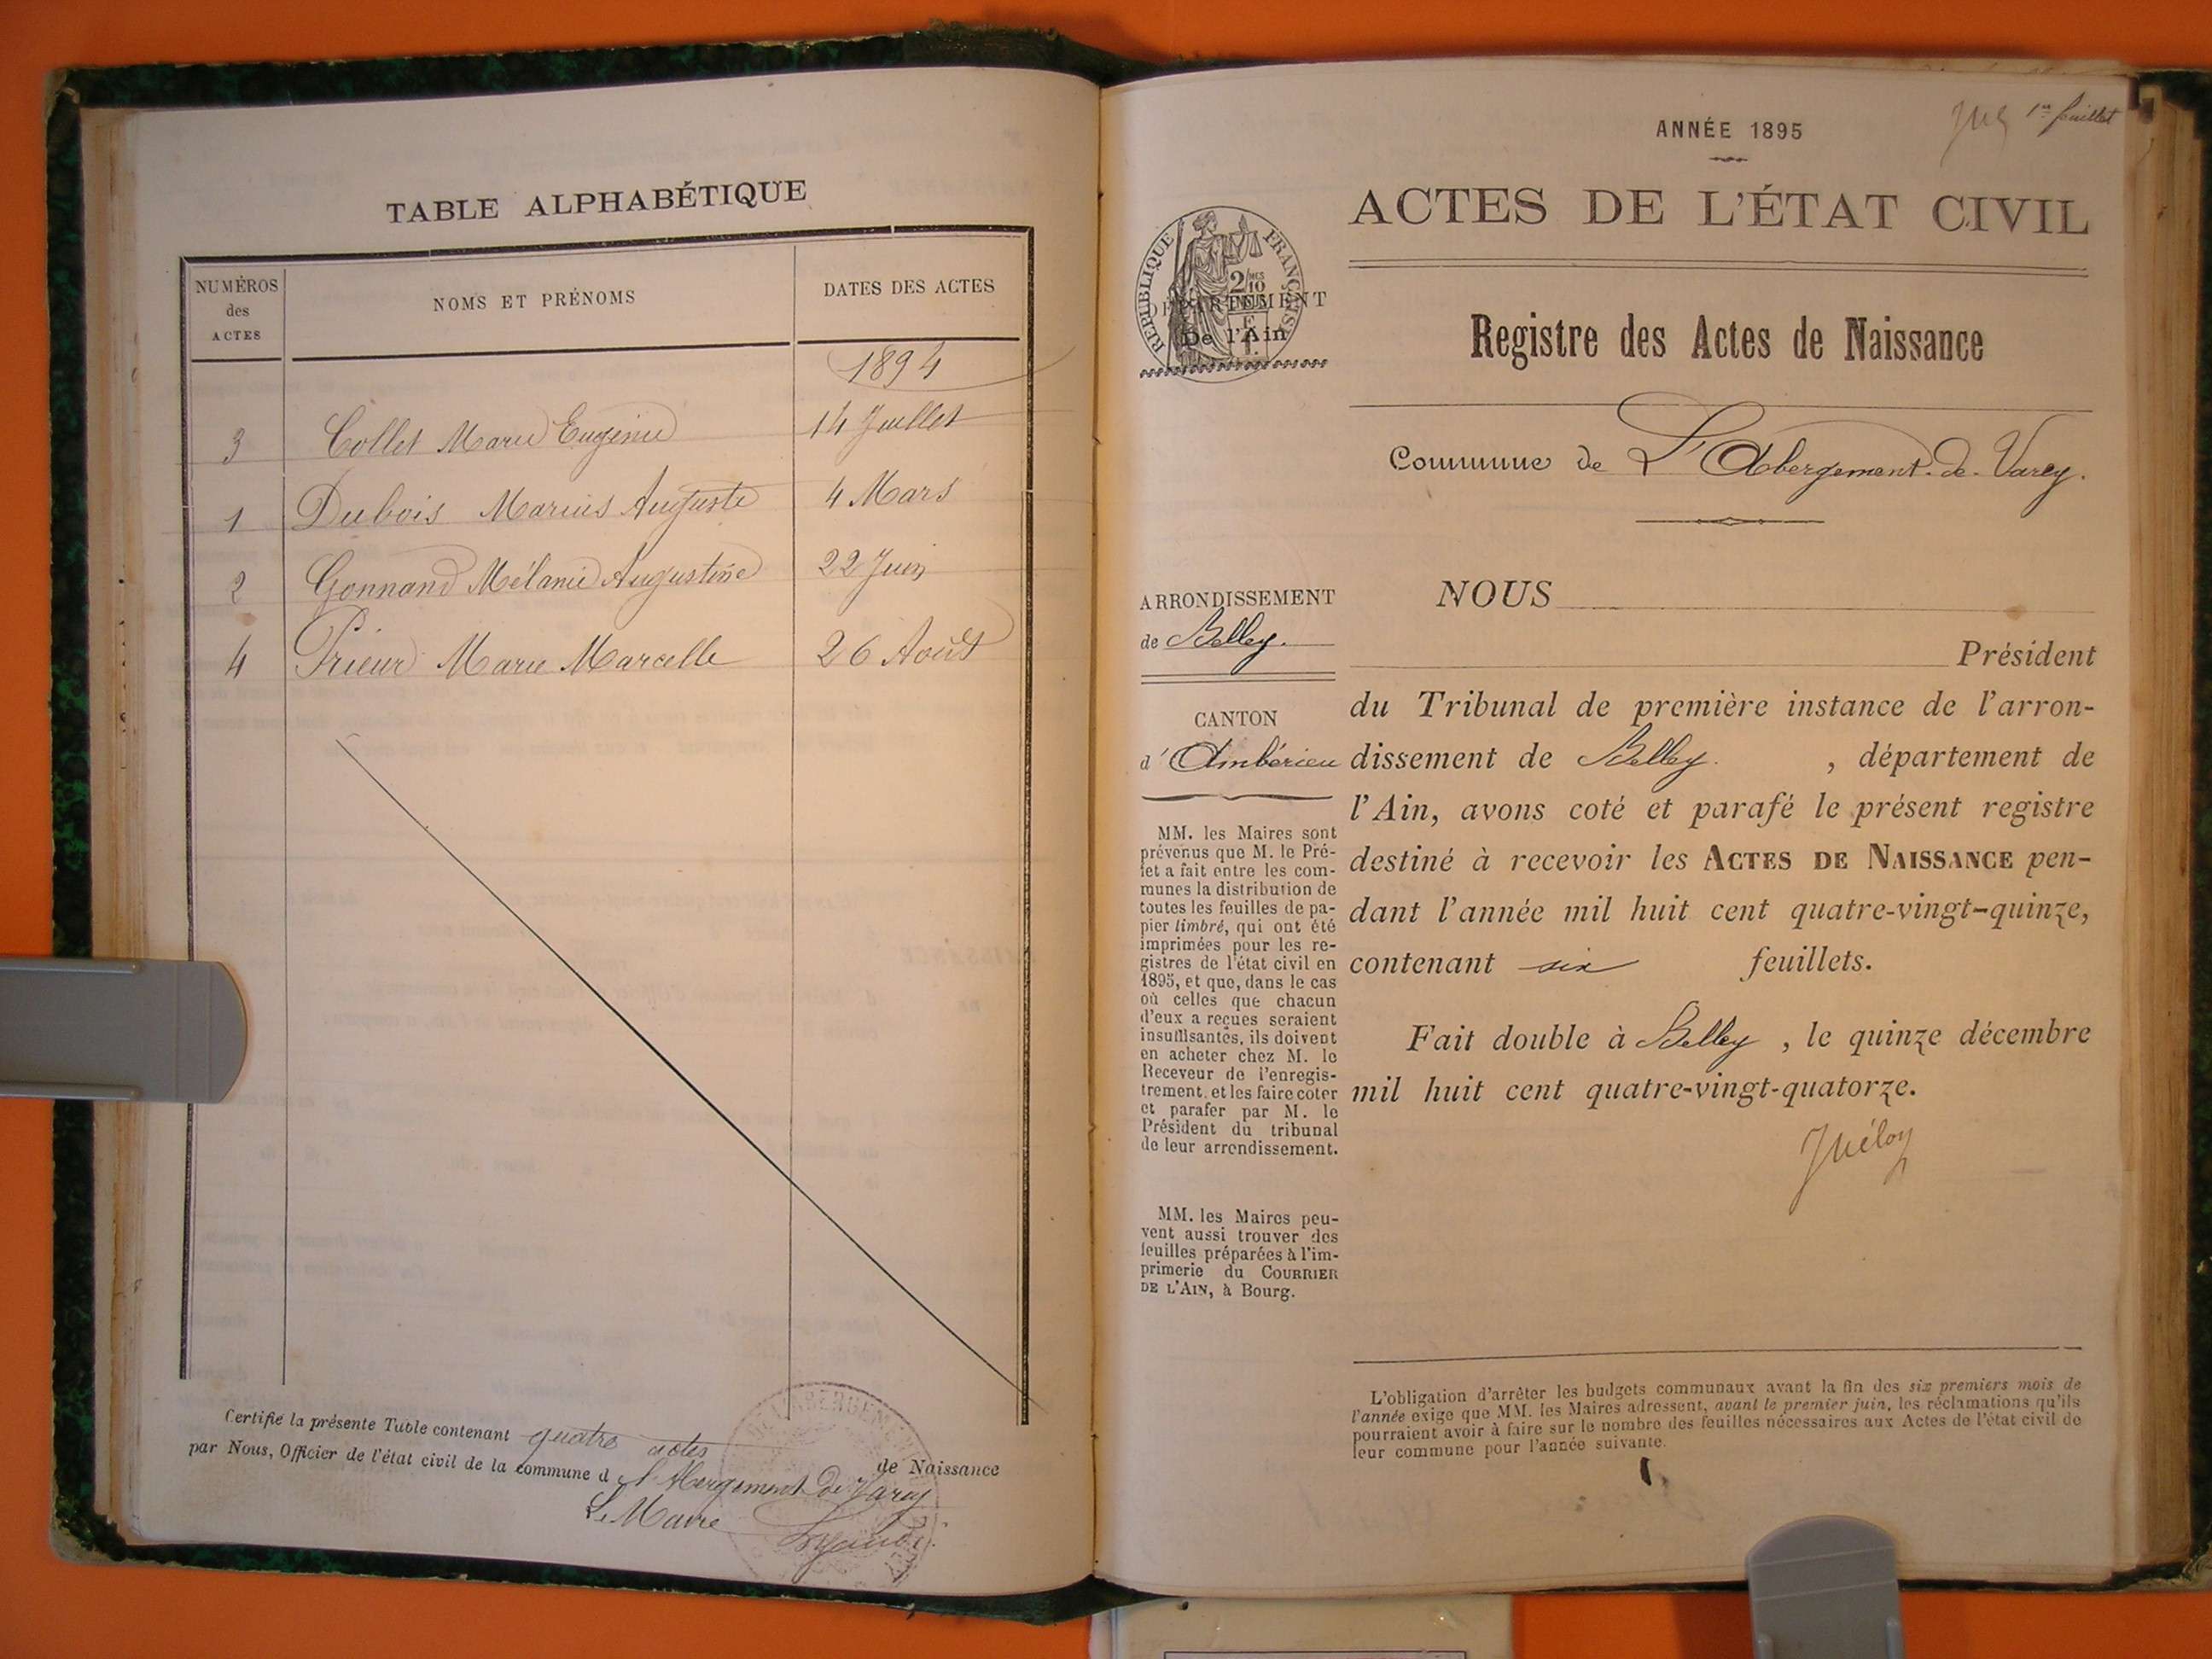 TABLE ALPHABÉTIQUE
NUMÉROS
des
ACTES
NOMS ET PRÉNOMS
DATES DES ACTES
1894
3 Collet Marie Eugénie 14 Juillet
1 Dubois Marius Auguste 4 Mars
2 Gonnand Mélanie Augustine 22 Juin
4 Prieur Marie Marcelle 26 Août
Certifié la présente Table contenant quatre actes de Naissance
par Nous, Officier de l'état civil de la commune d l'Abergement de Varey
Le Maire
1er feuillet
ANNÉE 1895
ACTES DE L'ÉTAT CIVIL
RÉPUBLIQUE FRANÇAISE
2/10
DÉPARTEMENT
De l'Ain
Registre des Actes de Naissance
Commune de L'Abergement-de-Varey.
ARRONDISSEMENT
de Belley.
CANTON
d'Ambérieu
MM. les Maires sont
prévenus que M. le Pré-
fet a fait entre les com-
munes la distribution de
toutes les feuilles de pa-
pier timbré, qui ont été
imprimées pour les re-
gistres de l'état civil en
1895, et que, dans le cas
où celles que chacun
d'eux a reçues seraient
insuffisantes, ils doivent
en acheter chez M. le
Receveur de l'enregis-
trement, et les faire coter
et parafer par M. le
Président du tribunal
de leur arrondissement.
MM. les Maires peu-
vent aussi trouver des
feuilles préparées à l'im-
primerie du COURRIER
DE L'AIN, à Bourg.
NOUS
Président
du Tribunal de première instance de l'arron-
dissement de Belley. , département de
l'Ain, avons coté et parafé le présent registre
destiné à recevoir les ACTES DE NAISSANCE pen-
dant l'année mil huit cent quatre-vingt-quinze,
contenant six feuillets.
Fait double à Belley , le quinze décembre
mil huit cent quatre-vingt-quatorze.
L'obligation d'arrêter les budgets communaux avant la fin des six premiers mois de
l'année exige que MM. les Maires adressent, avant le premier juin, les réclamations qu'ils
pourraient avoir à faire sur le nombre des feuilles nécessaires aux Actes de l'état civil de
leur commune pour l'année suivante.